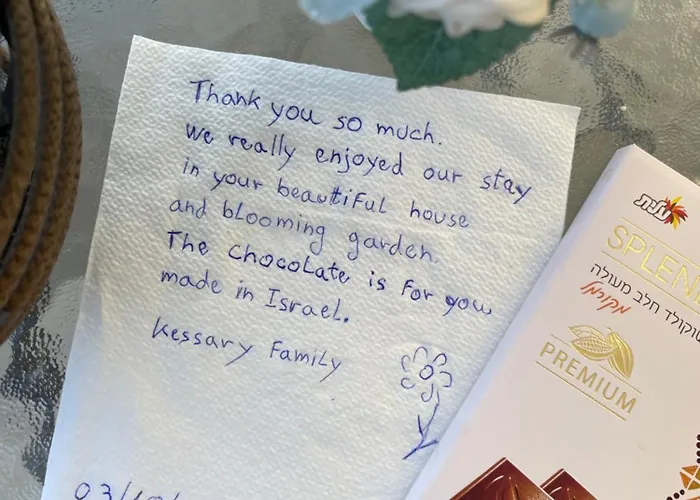 Thank you so much.
we really enjoyed our stay
in your beautiful house
and blooming garden.
The chocolate is for you
made in Israel.
Kessary Family
עלית
שוקולד חלב מעולה
PREMIUM